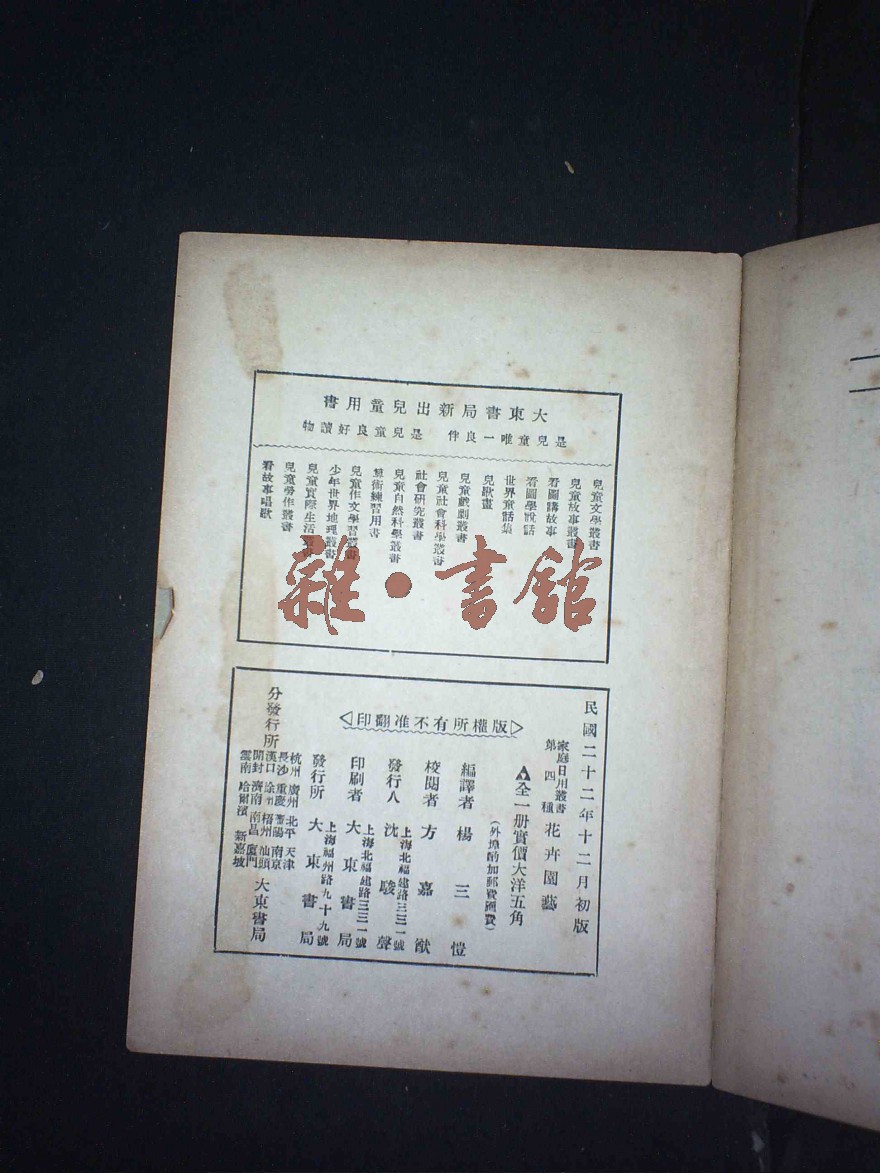 大東書局新出兒童用書
是兒童唯一良伴 是兒童良好讀物
兒童文學叢書
兒童故事叢書
看圖講故事
看圖學說話
世界童話集
兒歌畫
兒童戲劇叢書
兒童社會科學叢書
社會研究叢書
兒童自然科學叢書
算術練習用書
兒童作文學習叢書
少年世界地理叢書
兒童實際生活叢書
兒童勞作叢書
看故事唱歌
雜·書館
民國二十二年十二月初版
家庭日用叢書第四種 花卉園藝
全一册實價大洋五角
(外埠酌加郵費匯費)
版權所有不准翻印
編譯者 楊三愷
校閱者 方嘉猷
發行人 沈駿聲
上海北福建路三三二號
印刷者 大東書局
上海北福建路三三二號
發行所 大東書局
上海福州路九十九號
分發行所
杭州 廣州 北平 天津
長沙 重慶 瀋陽 南京
漢口 徐州 梧州 汕頭
開封 濟南 南昌 廈門
雲南 哈爾濱 新嘉坡
大東書局